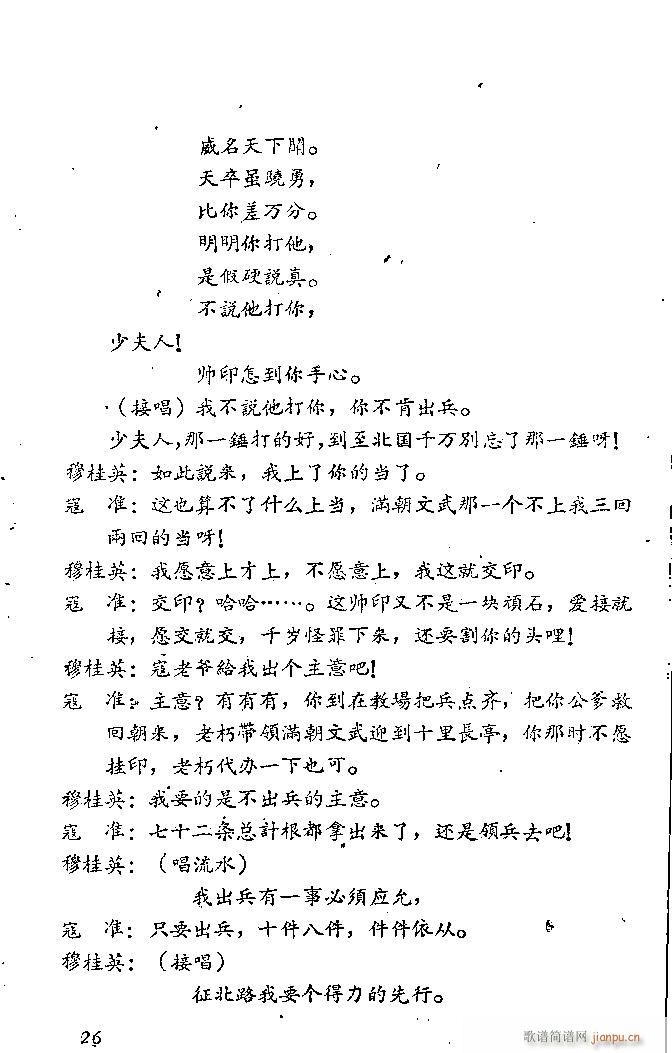 威名天下闻。
天卒虽驍勇，
比你差万分。
明明你打他，
是假硬説真。
不説他打你，
少夫人！
帅印怎到你手心。
（接唱）我不説他打你，你不肯出兵。
少夫人，那一錘打的好，到至北国千万別忘了那一錘呀！
穆桂英：如此説来，我上了你的当了。
寇　准：这也算不了什么上当，滿朝文武那一个不上我三回
兩回的当呀！
穆桂英：我愿意上才上，不愿意上，我这就交印。
寇　准：交印？哈哈……。这帅印又不是一块頑石，爱接就
接，愿交就交，千岁怪罪下来，还要割你的头哩！
穆桂英：寇老爷給我出个主意吧！
寇　准：主意？有有有，你到在教場把兵点齐，把你公爹救
回朝来，老朽带領滿朝文武迎到十里長亭，你那时不愿
挂印，老朽代办一下也可。
穆桂英：我要的是不出兵的主意。
寇　准：七十二条总計根都拿出来了，还是領兵去吧！
穆桂英：（唱流水）
我出兵有一事必須应允，
寇　准：只要出兵，十件八件，件件依从。
穆桂英：（接唱）
征北路我要个得力的先行。
26
歌谱简谱网
jianpu.cn